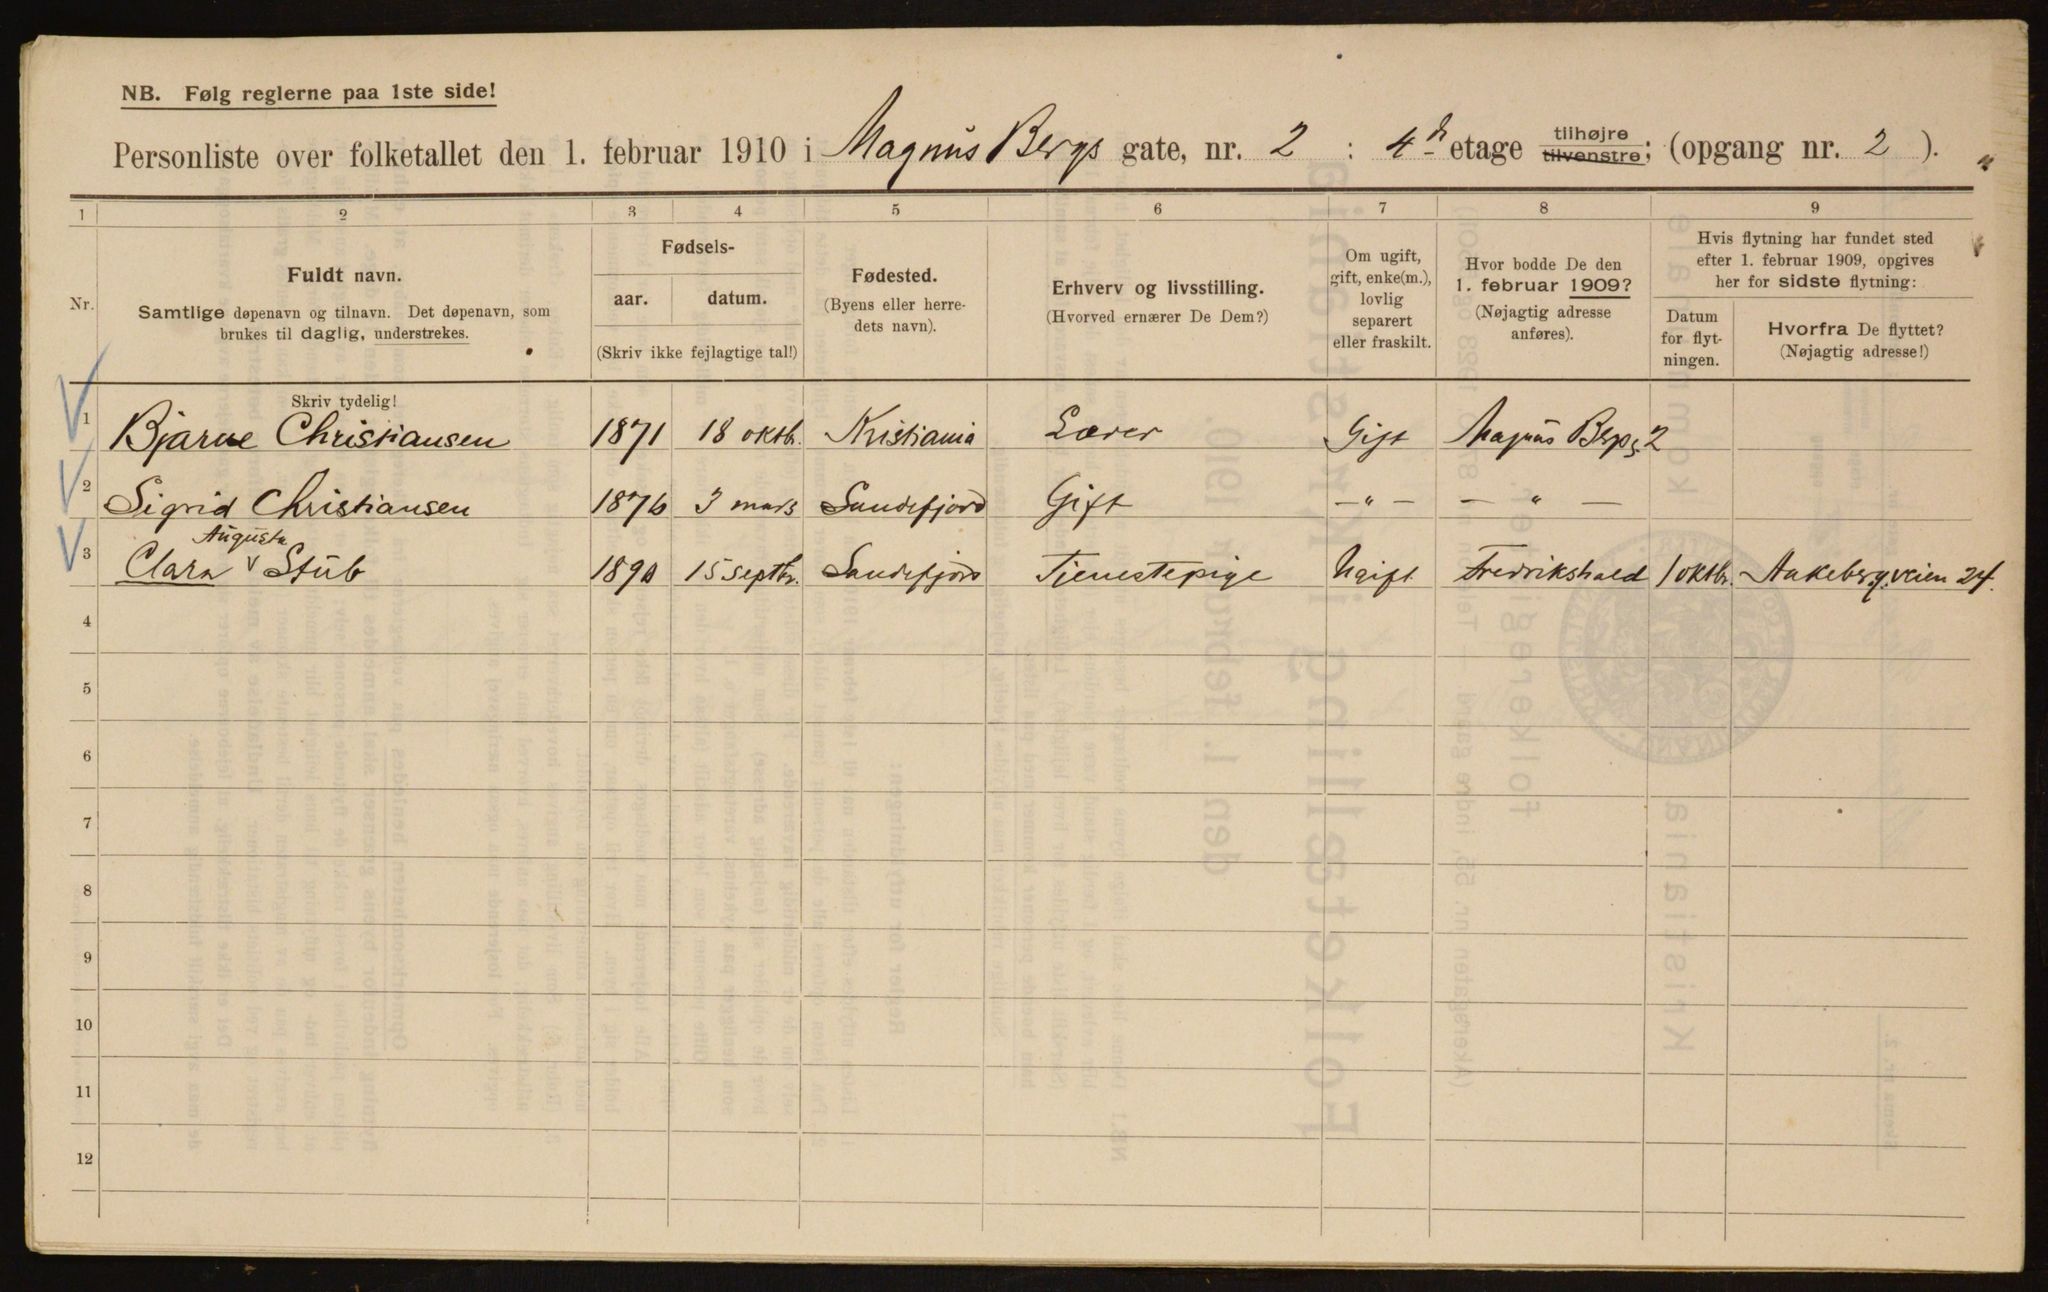 NB. Følg reglerne paa 1ste side!
Personliste over folketallet den 1. februar 1910 i Magnus Bergs gate, nr. 2 : 4d etage tilhøjre tilvenstre; (opgang nr. 2 ).
1 2 3 4 5 6 7 8 9
Nr.
Fuldt navn.
Samtlige døpenavn og tilnavn. Det døpenavn, som
brukes til daglig, understrekes.
Fødsels-
aar. datum.
(Skriv ikke fejlagtige tal!)
Fødested.
(Byens eller herre-
dets navn).
Erhverv og livsstilling.
(Hvorved ernærer De Dem?)
Om ugift,
gift, enke(m.),
lovlig
separert
eller fraskilt.
Hvor bodde De den
1. februar 1909?
(Nøjagtig adresse
anføres).
Hvis flytning har fundet sted
efter 1. februar 1909, opgives
her for sidste flytning:
Datum
for flyt-
ningen.
Hvorfra De flyttet?
(Nøjagtig adresse!)
Skriv tydelig!
1 Bjarne Christiansen 1871 18 oktb. Kristiania Lærer Gift Magnus Bergs 2
2 Sigrid Christiansen 1876 3 mars Sandefjord Gift —"— —"—
3 Clara Augusta Stub 1890 15 septbr. Sandefjord Tjenestepige Ugift Fredrikshald 1 oktbr. Aakebergveien 24.
4
5
6
7
8
9
10
11
12